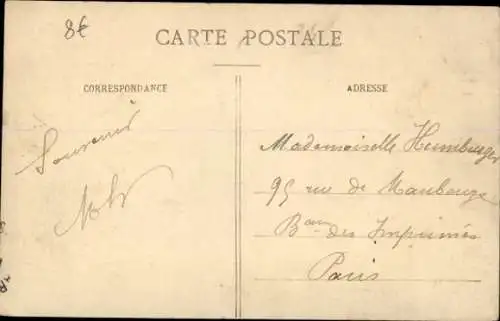 8€
CARTE POSTALE
CORRESPONDANCE
ADRESSE
Souvenir
Mademoiselle Humburger
95 rue de Maubeuge
Bau des Imprimés
Paris